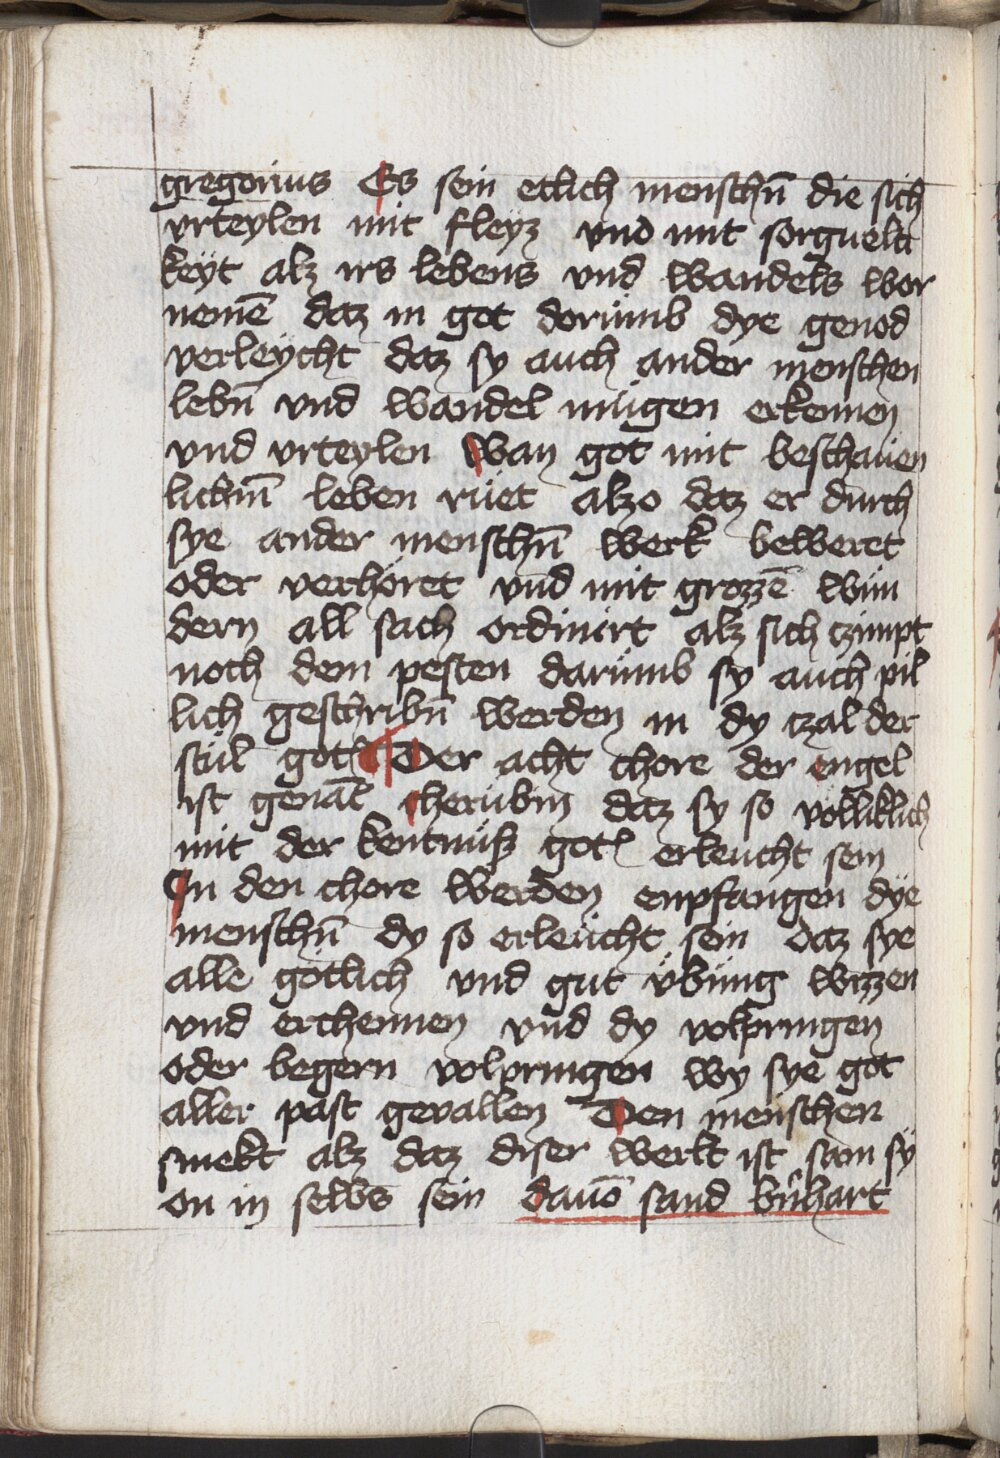 gregorius Es sein etlich menschn̄ die sich
vrteylen mit fleyz vnd mit sorguelti
keyt alz irs lebens vnd wandels wor
nemē daz in got dorumb dye genod
verleycht daz sy auch ander menschen
lebn̄ vnd wandel mügen erkennen
vnd vrteylen wan got mit beschauen
lichm̄ leben ruet alzo daz er durch
sye ander menschn̄ werk beweret
oder verhöret vnd mit grozzē wun
dern all sach ordinirt alz sich czimpt
noch dem pesten darumb sy auch pil
lich geschribn̄ werden in dy czal der
stül gotz Der acht chore der engel
ist genāt cherubin daz sy so völliklich
mit der kentnüsz gotz erleucht sein
In den chore werden enpfangen dye
menschn̄ dy so erleücht sein daz sye
alle götlich vnd gut übung wizzen
vnd erchennen vnd dy volpringen
oder begern volpringen wy sye got
aller past gevallen Den menschen
smekt alz daz diser werlt ist sam sy
on in selbs sein dauō sand bn̄hart